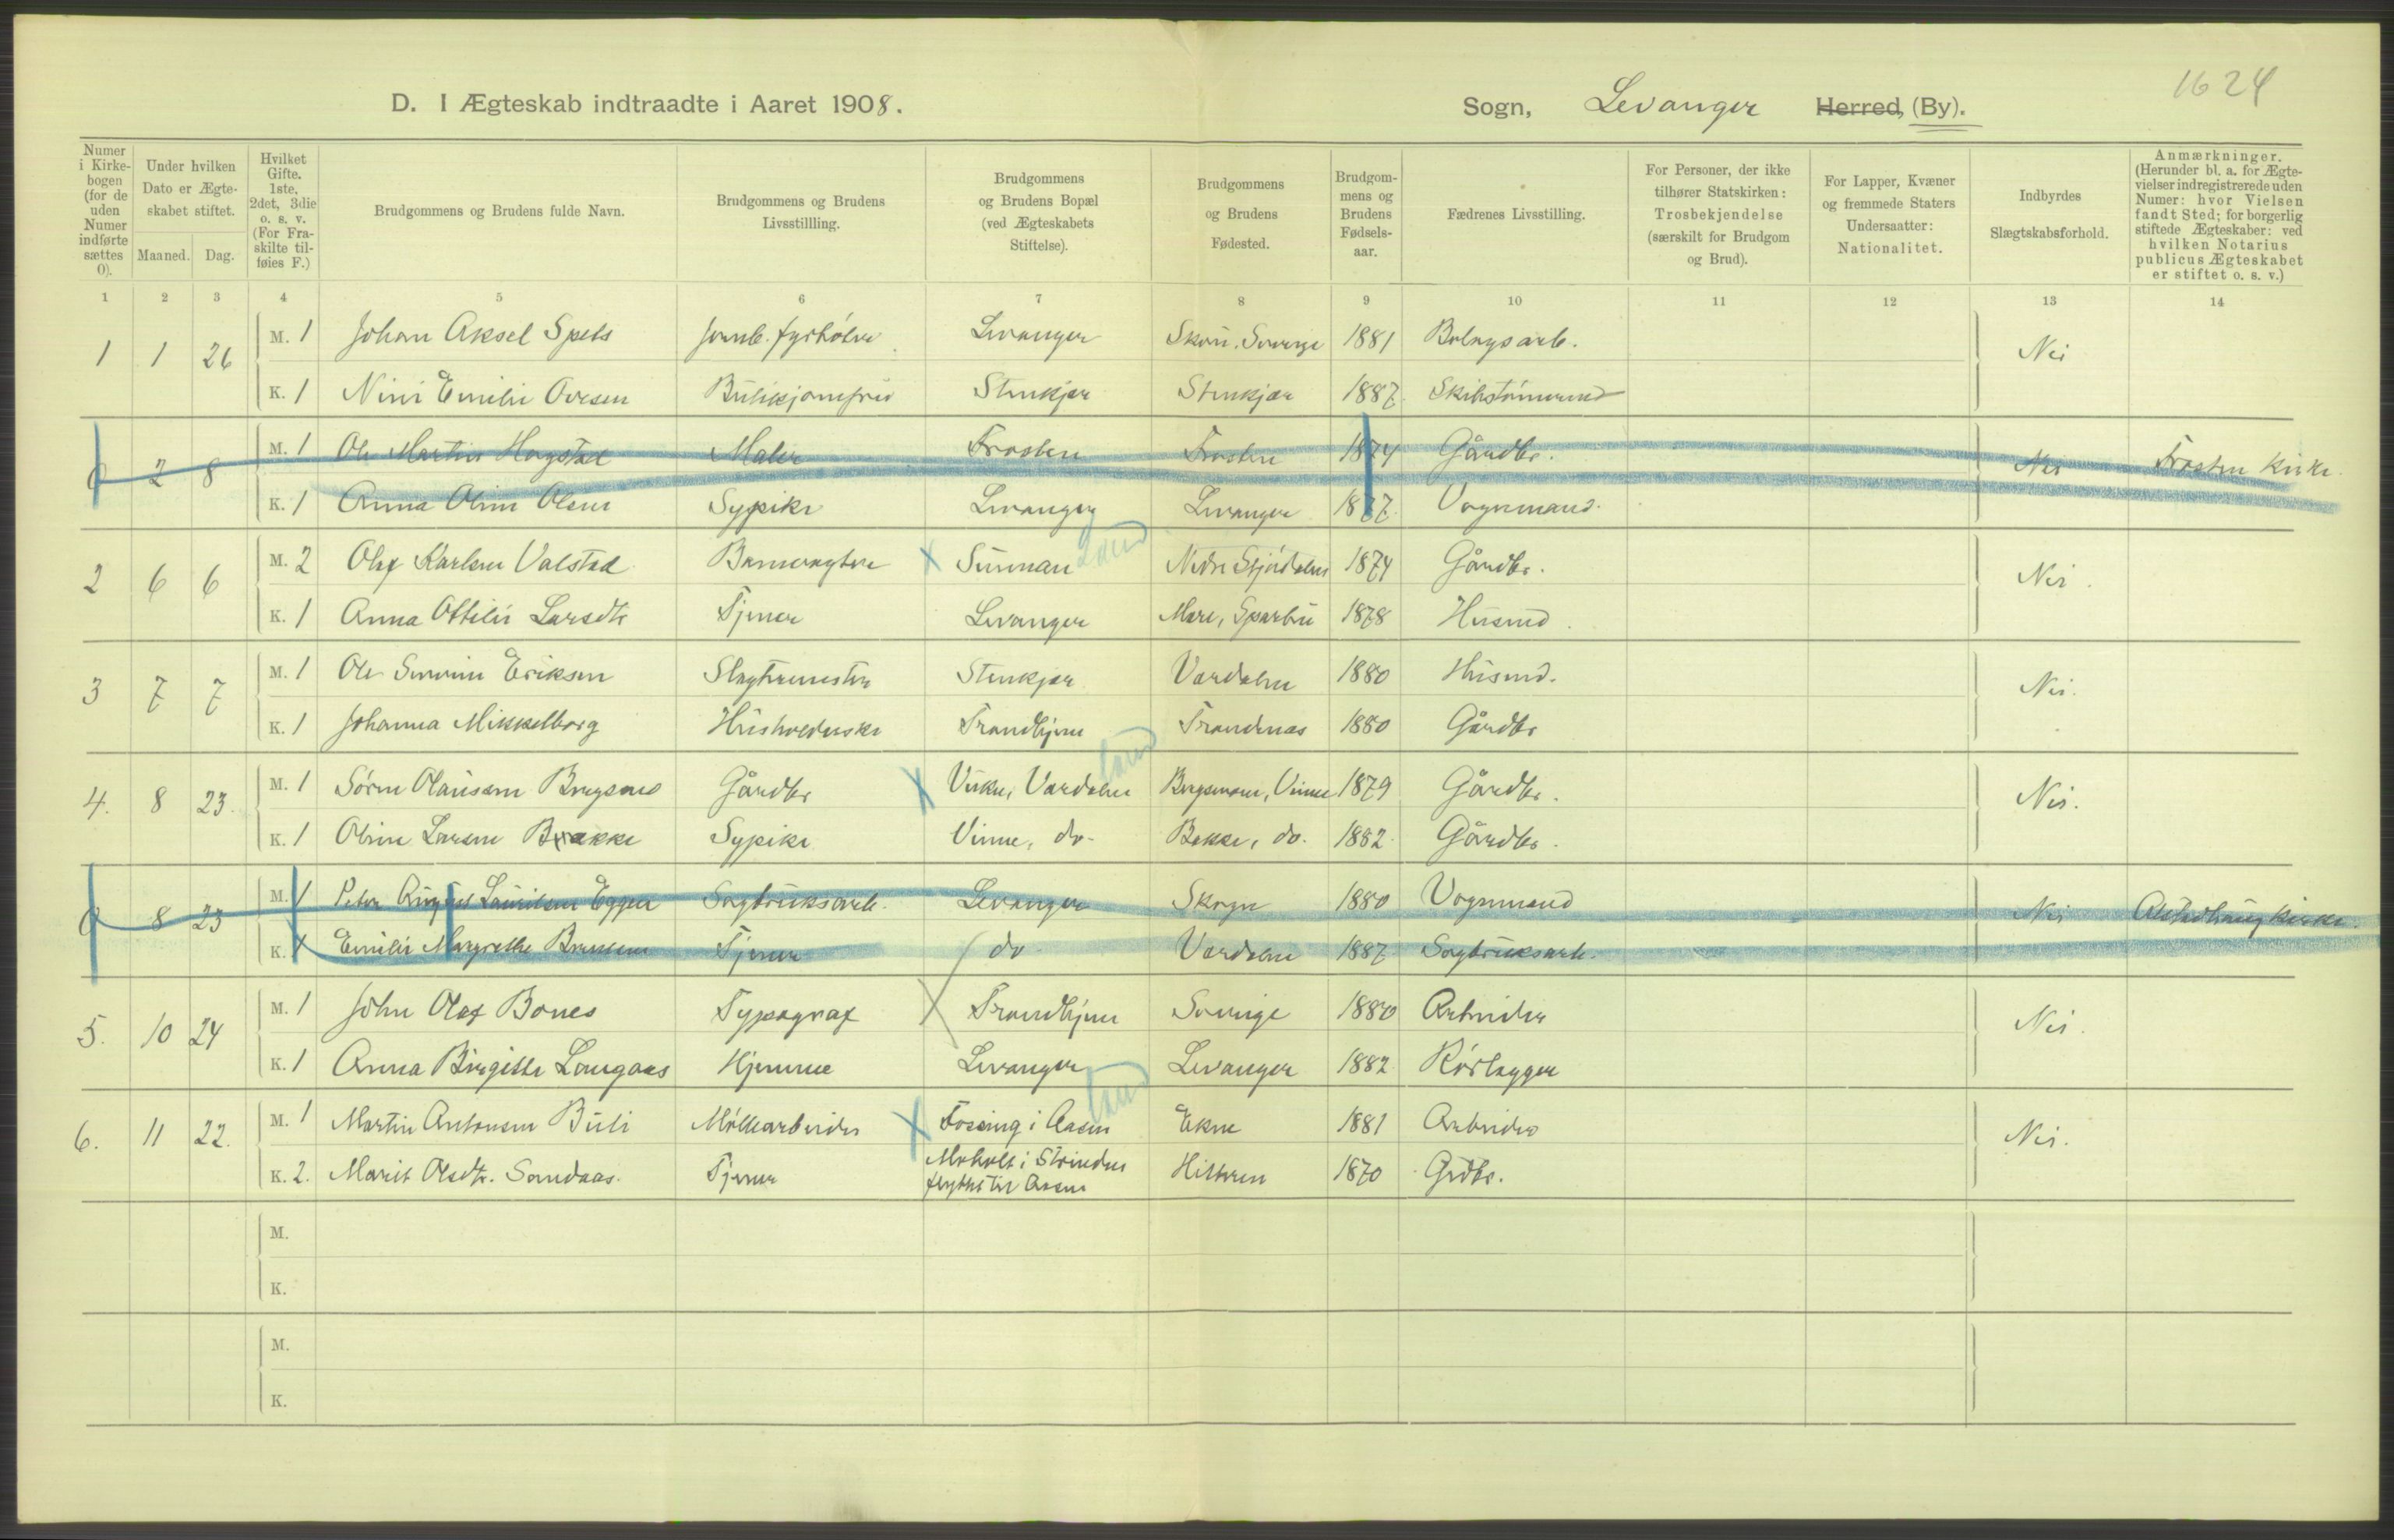 1624
D. I Ægteskab indtraadte i Aaret 1908. Sogn, Levanger Herred, (By).
Numer i Kirkebogen (for de uden Numer indførte sættes 0).
Under hvilken Dato er Ægteskabet stiftet.
Maaned. Dag.
Hvilket Gifte. 1ste, 2det, 3die o. s. v. (For Fraskilte tilføies F.)
Brudgommens og Brudens fulde Navn.
Brudgommens og Brudens Livsstillling.
Brudgommens og Brudens Bopæl (ved Ægteskabets Stiftelse).
Brudgommens og Brudens Fødested.
Brudgommens og Brudens Fødselsaar.
Fædrenes Livsstilling.
For Personer, der ikke tilhører Statskirken: Trosbekjendelse (særskilt for Brudgom og Brud).
For Lapper, Kvæner og fremmede Staters Undersaatter: Nationalitet.
Indbyrdes Slægtskabsforhold.
Anmærkninger. (Herunder bl. a. for Ægtevielser indregistrerede uden Numer: hvor Vielsen fandt Sted; for borgerlig stiftede Ægteskaber: ved hvilken Notarius publicus Ægteskabet er stiftet o. s. v.)
1 2 3 4 5 6 7 8 9 10 11 12 13 14
1 1 26 M. 1 Johan Aksel Spets Jernb. fyrbøter Levanger Skön. Sverige 1881 Bolagsarb. Nei
K. 1 Nini Emilie Ovesen Butikjomfru Stenkjær Stenkjær 1887 Skibstømmermd
0 2 8 M. 1 Ole Martin Hogstad Maler Frosten Frosten 1874 Gårdbr. Nei Frosten Kirke.
K. 1 Anna Oline Olsen Sypike Levanger Levanger 1877 Vognmand.
2 6 6 M. 2 Olaf Karlsen Valstad Banevogter X Sunnan Land Nedre Stjørdalen 1874 Gårdbr. Nei.
K. 1 Anna Ottilie Larsdtr Tjener Levanger Mære, Sparbu 1878 Husmd.
3 7 7 M. 1 Ole Severin Eriksen Slagtermester Stenkjær Værdalen 1880 Husmd. Nei.
K. 1 Johanna Mikkelborg Husholderske Trondhjem Trondenæs 1880 Gårdbr
4. 8 23. M. 1 Sørn Olausen Bergsmo Gårdbr X Vuku, Værdalen land Bergsmoen, Vinne 1879 Gårdbr. Nei.
K. 1 Oline Larsen Bxakke Sypike Vinne, do- Bakke, do. 1882. Gårdbr.
0 8 23 M. 1 Peter August Lauritsen Eggen Sagbruksarb. Levanger Skogn 1880 Vognmand Nei Alstadhaug Kirke.
K. 1 Emilie Margrethe Tjener do Værdalen 1887 Sagbruksarb.
5. 10 24 M. 1 John Olaf Bones Typograf X Trondhjem Sverige 1880 Arbeider Nei.
K. 1 Anna Birgitte Langaas Hjemme Levanger Levanger 1882 Rørlægger
6. 11 22. M. 1 Martin Antonsen Buli Møllearbeider X Fossing i Aasen land Ekne 1881 Arbeider Nei.
K. 2. Marit Olsdtr. Sandaas. Tjener Moholt i Strinden Hitteren 1870 Grdbr.
flyttet til Aasen
M.
K.
M.
K.